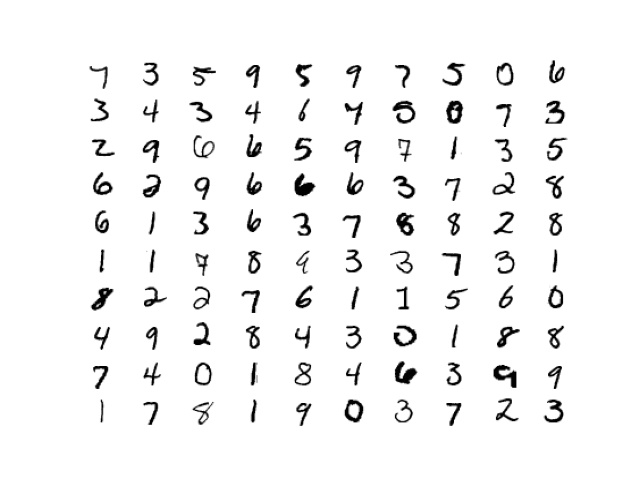 7 3 5 9 5 9 7 5 0 6
3 4 3 4 6 4 5 0 7 3
2 9 6 6 5 9 7 1 3 5
6 2 9 6 6 6 3 7 2 8
6 1 3 6 3 7 8 8 2 8
1 1 7 8 9 3 3 7 3 1
8 2 2 7 6 1 1 5 6 0
4 9 2 8 4 3 0 1 8 8
7 4 0 1 8 4 6 3 9 9
1 7 8 1 9 0 3 7 2 3